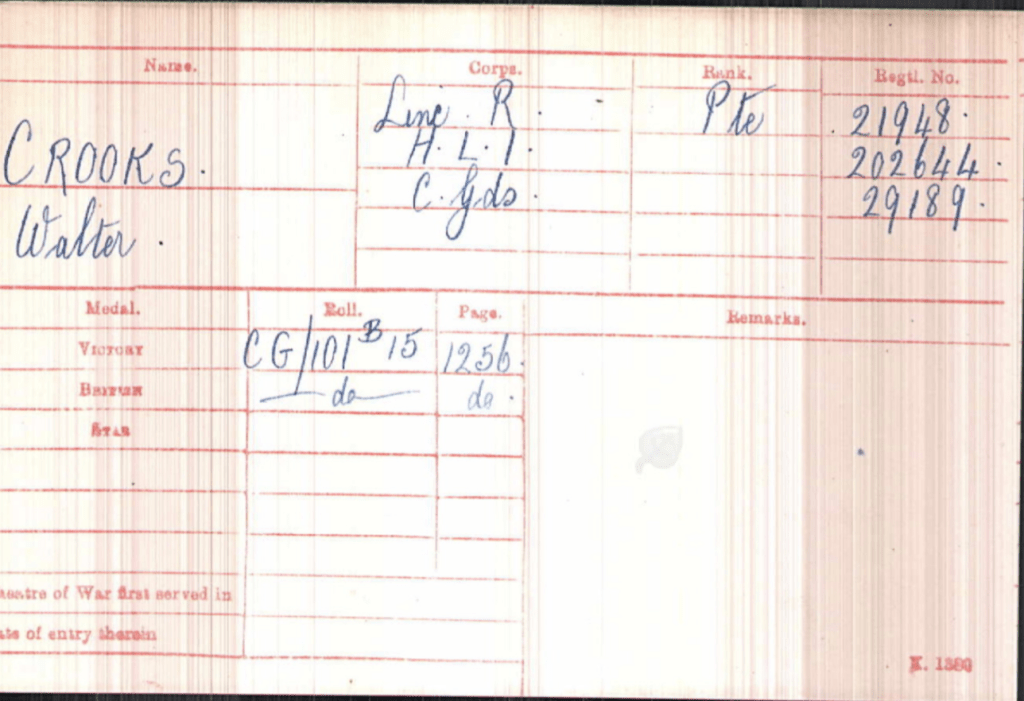 Name. Corps. Rank. Regtl. No.
CROOKS. Linc. R. Pte 21948.
H. L. I. 202644.
Walter. C. Gds. 29189.
Medal. Roll. Page. Remarks.
VICTORY CG/101 B 15 1256.
BRITISH do do.
STAR
eatre of War first served in
ate of entry therein
K. 1380